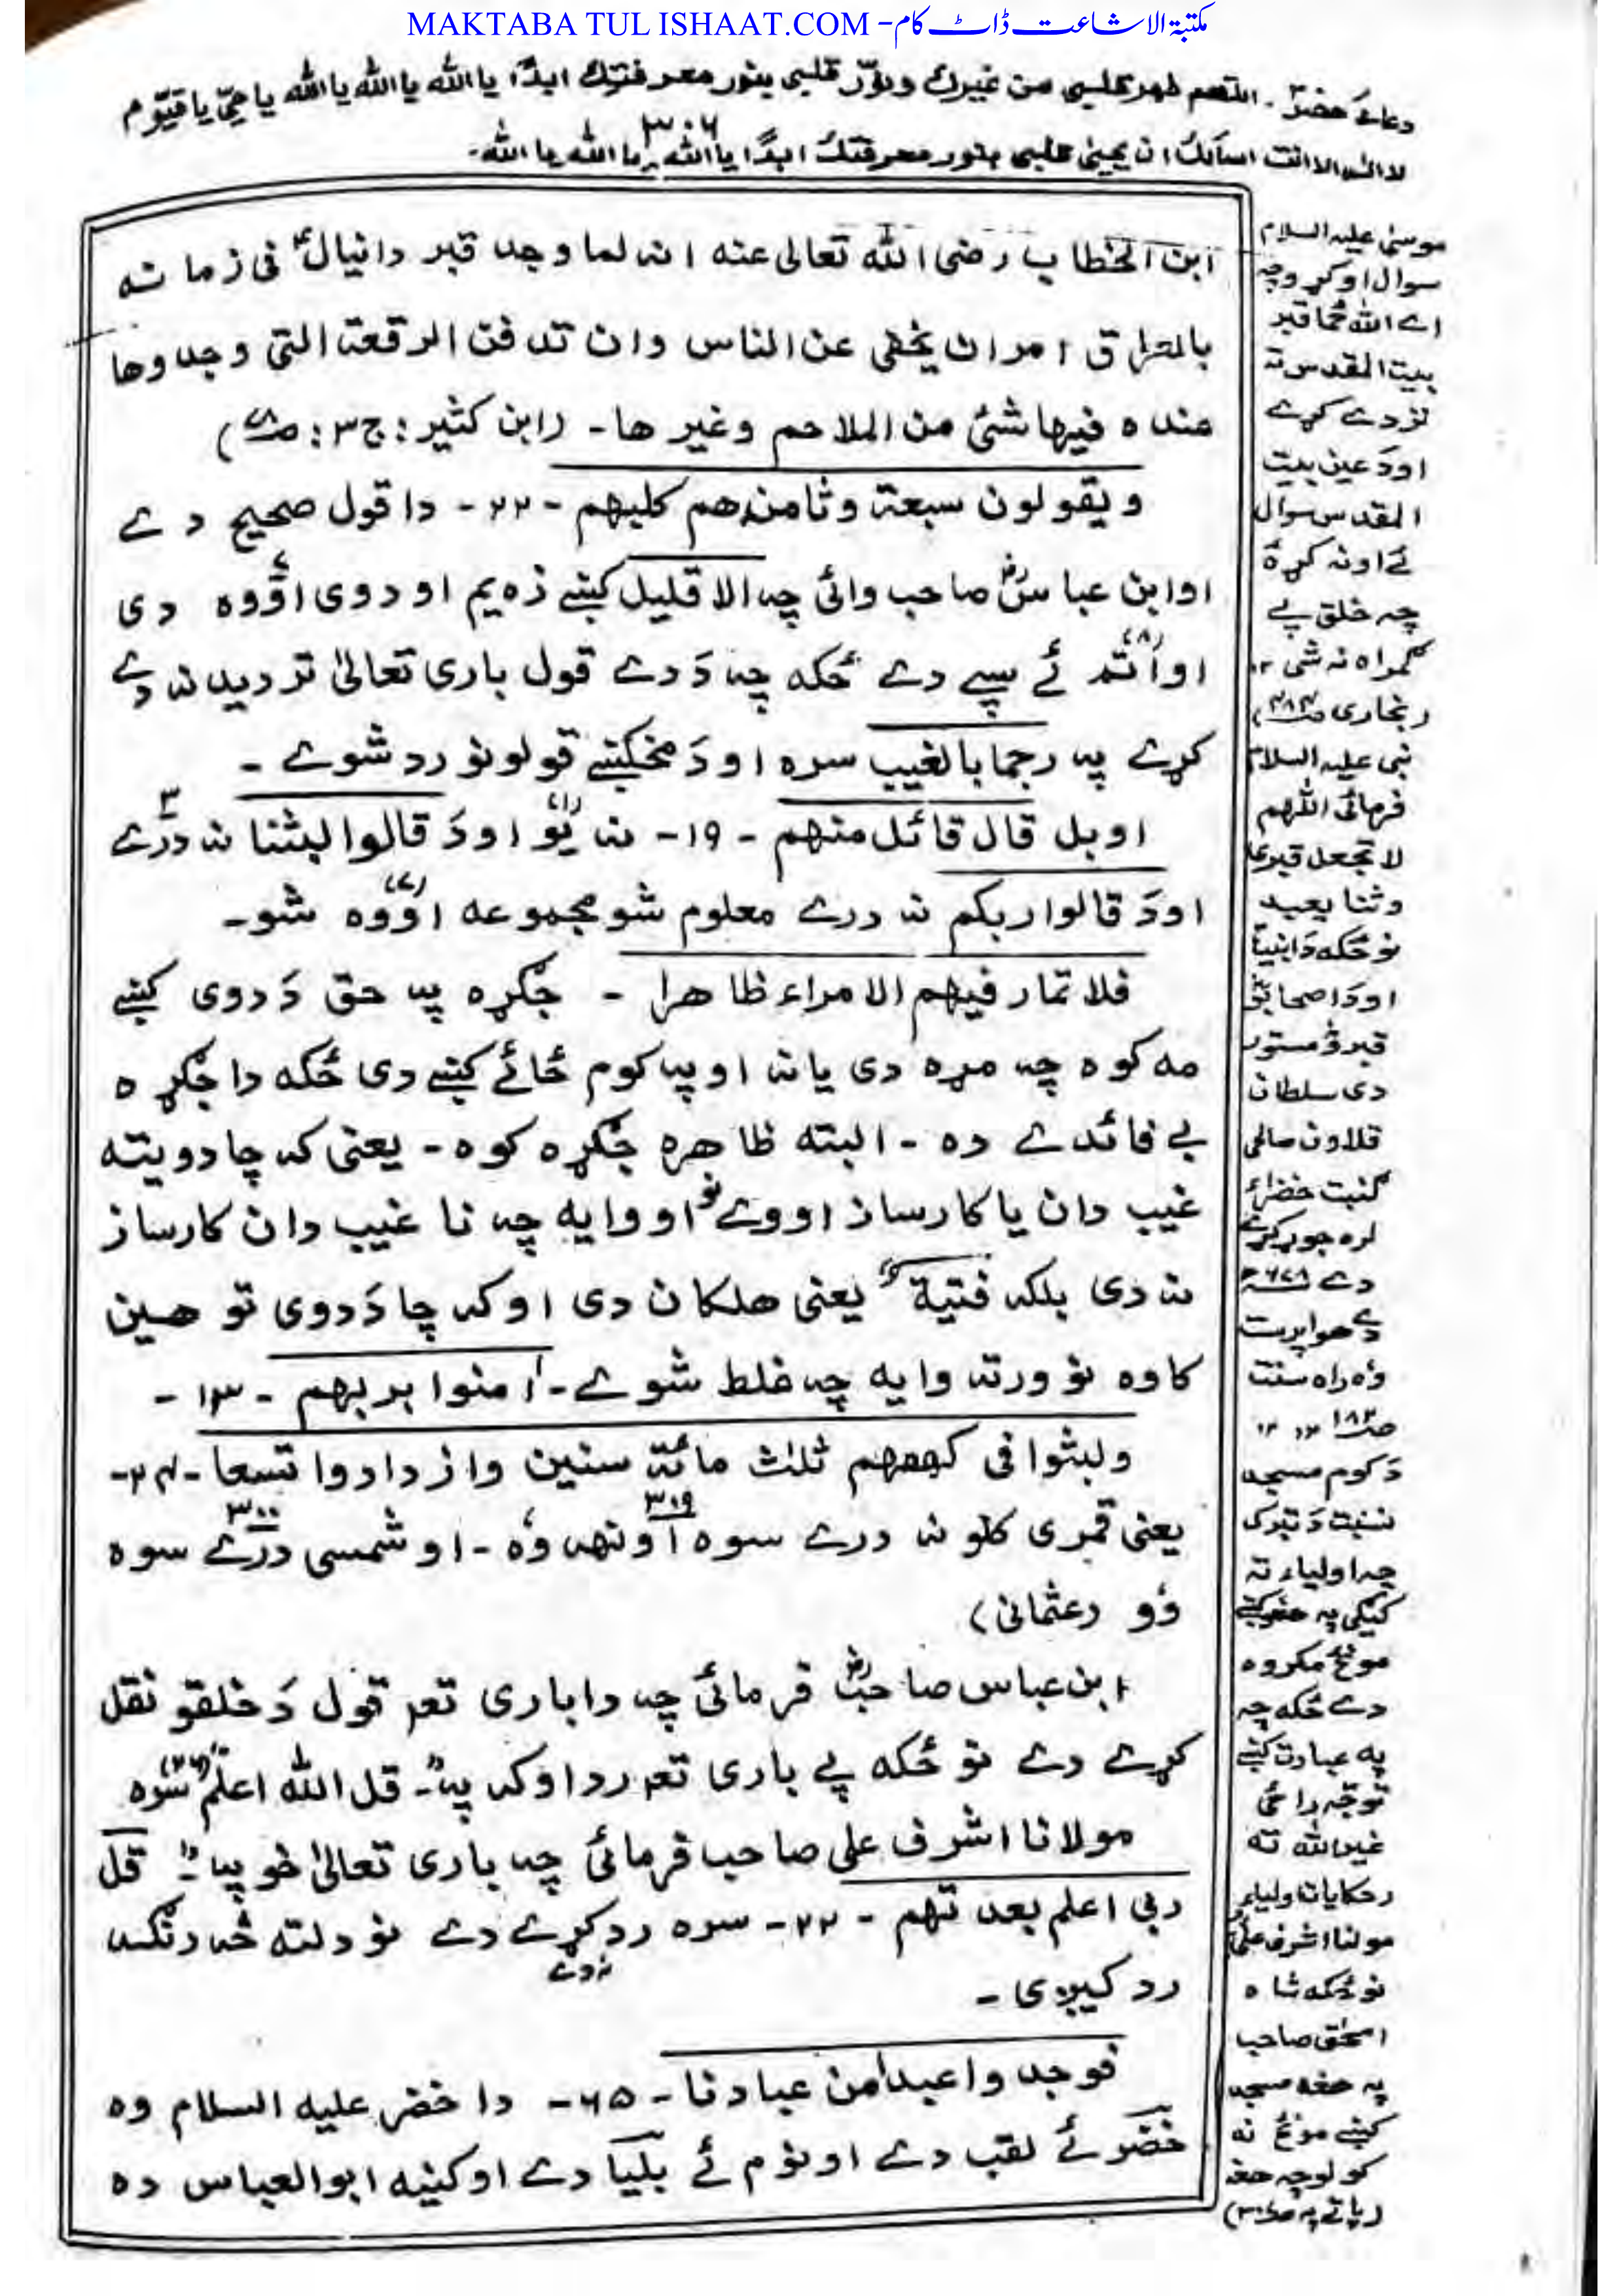 MAKTABA TUL ISHAAT.COM - مکتبۃ الاشاعت ڈاٹ کام
دعائے خضرؑ ۔ اللّٰهم طهر قلبي من غيرك ونوّر قلبي بنور معرفتك ابدًا يا الله يا الله يا الله يا حيّ يا قيّوم
٣٠٦
لا اله الا انت اسألك ان يحيى قلبي بنور معرفتك ابدًا يا الله يا الله يا الله۔
ابن الخطاب رضى الله تعالى عنه انه لما وجد قبر دانيالؑ فى زمانه
بالعراق امر ان يخفى عن الناس وان تدفن الرقعة التى وجدوها
عنده فيها شئ من الملاحم وغيرها۔ (ابن كثير: ج٣: ص٧٨)
ويقولون سبعة وثامنهم كلبهم - ٢٢ - دا قول صحيح دے
او ابن عباسؓ صاحب وائی چہ الا قليل کښے زه يم او دوی اوّوه دی
او اتم (٨) ئے سپے دے ځکه چه دَ دے قول باری تعالیٰ تردید نہ دے
کړے پہ رجما بالغيب سره او دَ مخکښے قولونو رد شوے ۔
او بل قال قائل منهم - ١٩ - نہ یو (١) او دَ قالوا لبثنا نہ درّے ٣
او دَ قالوا ربكم نہ درے معلوم شو مجموعه اوّوه (٧) شو۔
فلا تمار فيهم الا مراء ظاهرا - جګړه پہ حق دَ دوی کښے
مه کوه چہ مړه دی یا نہ او پہ کوم ځائے کښے دی ځکه دا جګړه
بے فائدے ده - البتہ ظاهره جګړه کوه - یعنی کہ چا دویته
غیب دان یا کارساز اووے نو اووایه چہ نا غیب دان کارساز
نہ دی بلکہ فتية یعنی هلکان دی او کہ چا دَ دوی تو هین
کاوه نو ورته وایه چہ غلط شوے - آمنوا بربهم - ١٣ -
ولبثوا فى كهفهم ثلث مائة سنين وازدادوا تسعا -
یعنی قمری کلونہ درے سوه او نهہ وه ٣٠٩ - او شمسی درے سوه ٣٠٠
وو (عثمانی)
ابن عباس صاحبؓ فرمائی چہ دا باری تعہ قول دَ خلقو نقل
کړے دے نو ځکه پے باری تعہ رد اوکہ پہ "قل الله اعلم" (٢٦) سره
مولانا اشرف علی صاحب فرمائی چہ باری تعالیٰ خو پہ "قل
ربى اعلم بعدتهم - ٢٢ - سره رد کړے دے نو دلته څه رنګه
رد کیږی -
فوجدوا عبدا من عبادنا - ٦٥ - دا خضر علیه السلام وه
خضر ئے لقب دے او نوم ئے بلیا دے او کنیه ابو العباس ده
موسیٰ علیہ السلام
سوال اوکړو چہ
اے الله ځما قبر
بیت المقدس تہ
نزدے کړے
او دَ عین بیت
المقدس سوال
ئے اونہ کړۀ
چہ خلق پے
ګمراه نہ شی ١٢
(بخاری ص٤٨٤)
نبی علیہ السلام
فرمائی اللهم
لا تجعل قبرى
وثنا يعبد
نو ځکه دَ انبیاؑ
او دَ اصحابوؓ
قبرؤ مستور
دی سلطان
قلاون صالحی
ګنبت خضراء
لره جوړ کړے
دے ٦٧٨
دَ مسجد
وه راه سنت
ص١٨٣ ١٢
دَ کوم مسجد
نسبت دَ تبرک
چہ اولیاء تہ
کیګی پہ هغه کښے
مونځ مکروه
دے ځکه چہ
پہ عبادت کښے
توجّه راغی
غیر الله تہ
(حکایات اولیاء
مولنا اشرف علیؒ
نو ځکه شاه
اسحٰق صاحب
پہ هغه مسجد
کښے مونځ نہ
کولو چہ هغه
(پاتے پہ ص٣٠٧)